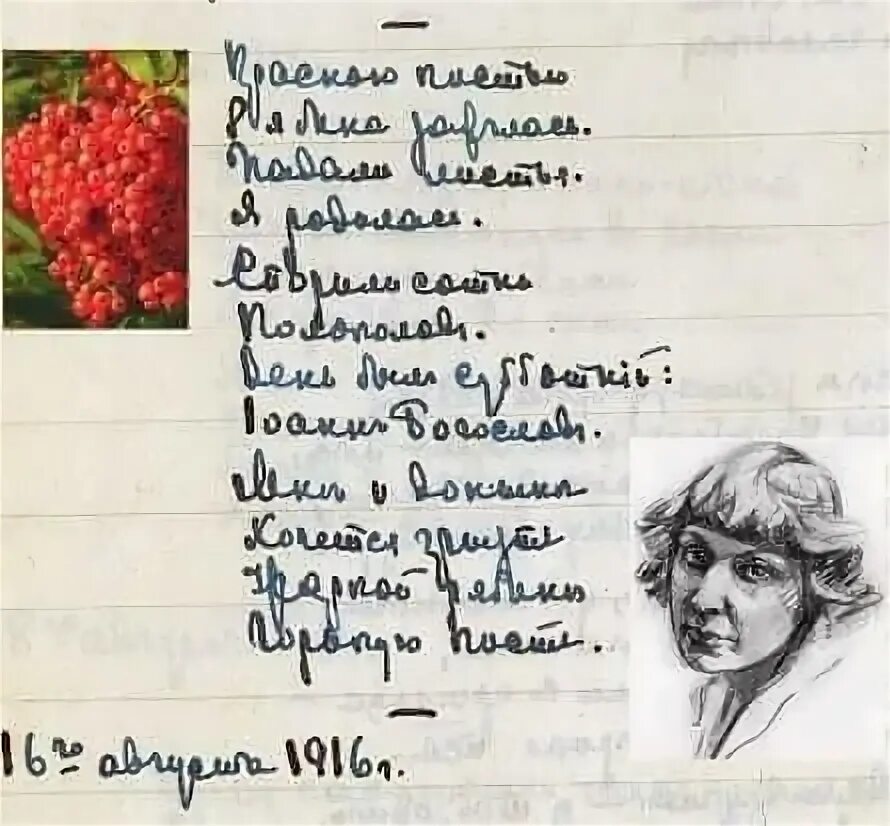 —
Красною кистью
Рябина зажглась.
Падали листья.
Я родилась.
Спорили сотни
Колоколовъ.
День былъ субботній:
Іоаннъ Богословъ.
Мнѣ и донынѣ
Хочется грызть
Жаркой рябины
Горькую кисть.
—
16го августа 1916г.